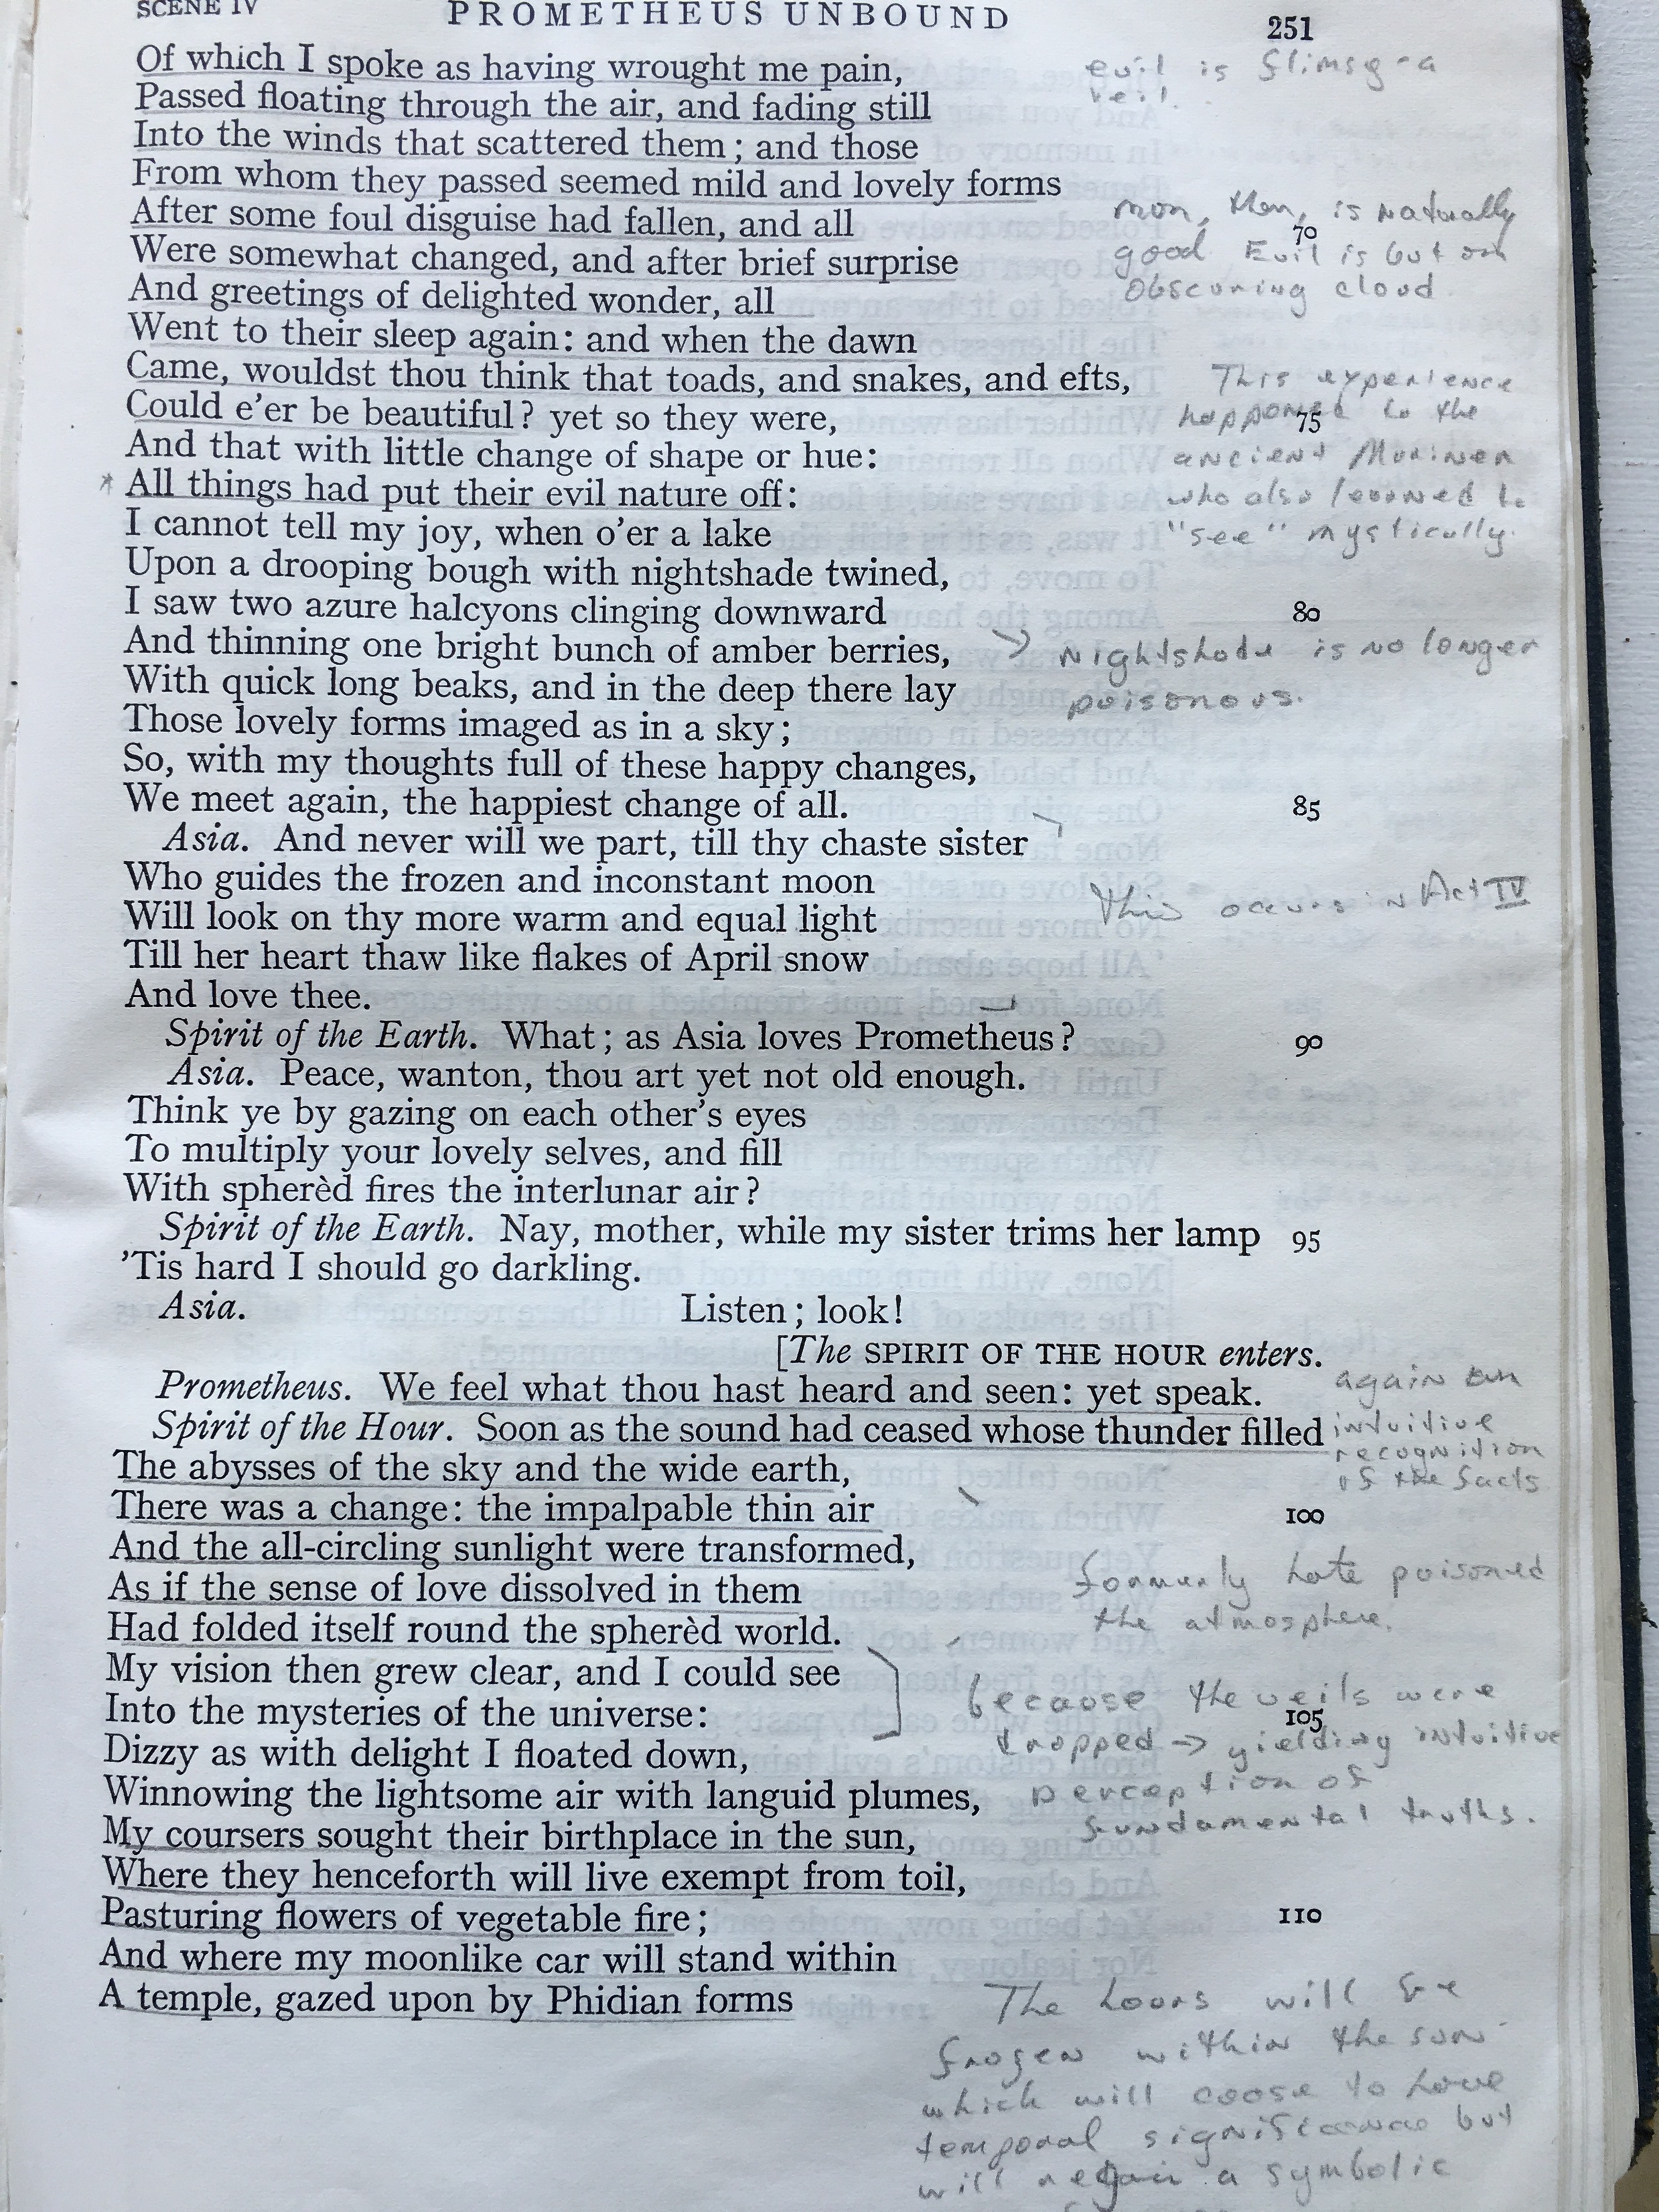 SCENE IV
PROMETHEUS UNBOUND
251
Of which I spoke as having wrought me pain,
evil is flimsy - a
veil.
Passed floating through the air, and fading still
Into the winds that scattered them; and those
From whom they passed seemed mild and lovely forms
After some foul disguise had fallen, and all
man, then, is naturally
70
Were somewhat changed, and after brief surprise
good Evil is but an
And greetings of delighted wonder, all
obscuring cloud
Went to their sleep again: and when the dawn
Came, wouldst thou think that toads, and snakes, and efts,
This experience
Could e'er be beautiful? yet so they were,
happened to the
75
And that with little change of shape or hue:
ancient Mariner
* All things had put their evil nature off:
who also learned to
I cannot tell my joy, when o'er a lake
"see" mystically.
Upon a drooping bough with nightshade twined,
I saw two azure halcyons clinging downward
80
And thinning one bright bunch of amber berries,
Nightshade is no longer
With quick long beaks, and in the deep there lay
poisonous.
Those lovely forms imaged as in a sky;
So, with my thoughts full of these happy changes,
We meet again, the happiest change of all.
85
Asia. And never will we part, till thy chaste sister
Who guides the frozen and inconstant moon
This occurs in Act IV
Will look on thy more warm and equal light
Till her heart thaw like flakes of April snow
And love thee.
Spirit of the Earth. What; as Asia loves Prometheus?
90
Asia. Peace, wanton, thou art yet not old enough.
Think ye by gazing on each other's eyes
To multiply your lovely selves, and fill
With spherèd fires the interlunar air?
Spirit of the Earth. Nay, mother, while my sister trims her lamp
95
'Tis hard I should go darkling.
Asia. Listen; look!
[The SPIRIT OF THE HOUR enters.
Prometheus. We feel what thou hast heard and seen: yet speak.
again an
Spirit of the Hour. Soon as the sound had ceased whose thunder filled
intuitive
recognition
The abysses of the sky and the wide earth,
of the facts
There was a change: the impalpable thin air
100
And the all-circling sunlight were transformed,
As if the sense of love dissolved in them
formerly hate poisoned
Had folded itself round the spherèd world.
the atmosphere.
My vision then grew clear, and I could see
because the veils were
Into the mysteries of the universe:
105
dropped → yielding intuitive
Dizzy as with delight I floated down,
Winnowing the lightsome air with languid plumes,
perception of
My coursers sought their birthplace in the sun,
fundamental truths.
Where they henceforth will live exempt from toil,
Pasturing flowers of vegetable fire;
110
And where my moonlike car will stand within
A temple, gazed upon by Phidian forms
The hours will be
frozen within the sun
which will cease to have
temporal significance but
will a symbolic